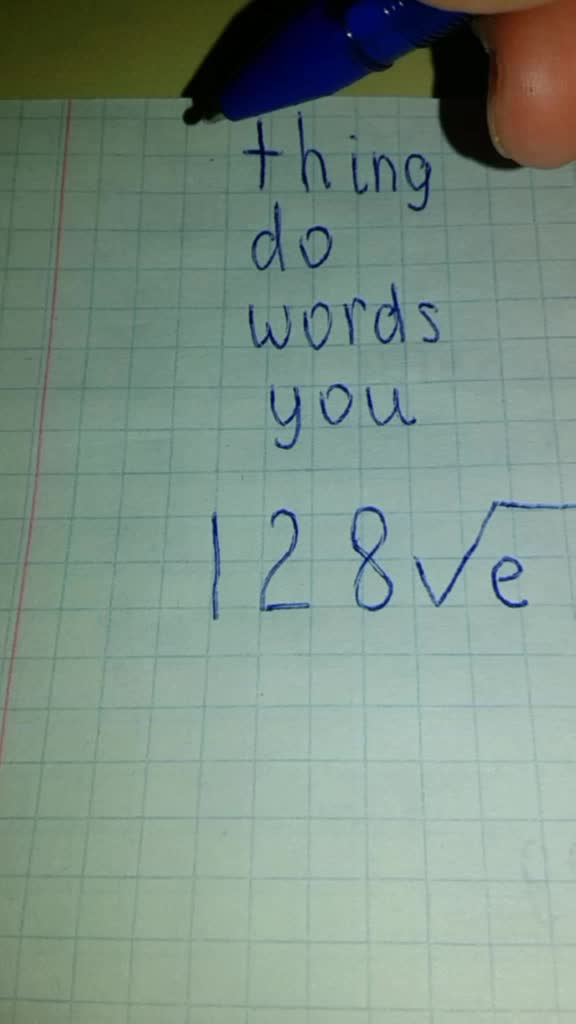 thing
do
words
you
128√e